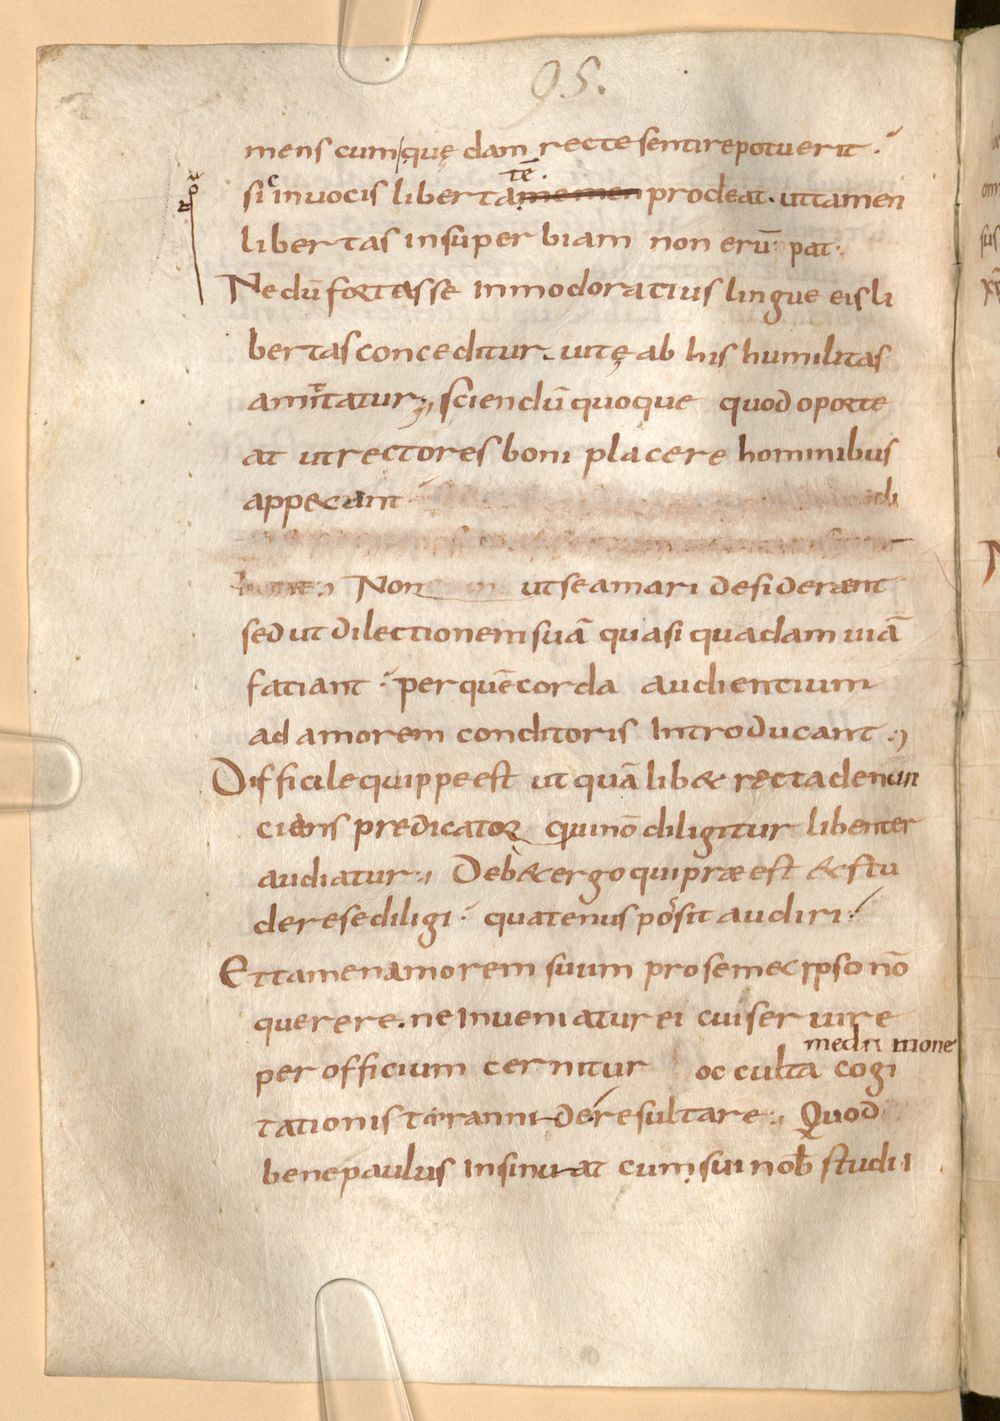 95.
mens cum quę dam recte sentire potuerit.
tē
sic in uocis liberta me men prodeat. ut tamen
libertas in superbiam non erū pat.
Ne dū fortasse inmodoratius lingue eis li
bertas conceditur. uitę ab his humilitas
amittatur; sciendū quoque quod oporte
at ut rectores boni placere hominibus
appetant
Non ut se amari desiderent
sed ut dilectionem suā quasi quadam uiā
faciant per quē corda audientium
ad amorem conditoris Introducant;
Difficile quippe est ut quālib& recta denun
ciens predicator qui nō diligitur libenter
audiatur; Deb& ergo qui præest & stu
dere se diligi quatenus possit audiri.
Et tamen amorem suum pro semet ipso nō
querere. ne Inueniatur ei cui seruire
per officium cernitur occulta cogi
tationis tirannide resultare; Quod
bene paulus insinuat cum sui nob̄ studii